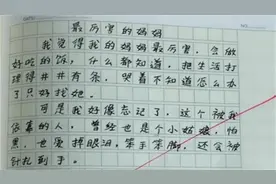 最厉害的妈妈
我觉得我的妈妈最厉害，会做
好吃的饭，什么都知道，把生活打
理得井井有条，哭着不知道怎么办
了只好找她。
可是我好像忘记了，这个被我
依靠的人，曾经也是个小姑娘，怕
黑，也爱掉眼泪，笨手笨脚，还会被
针扎到手。